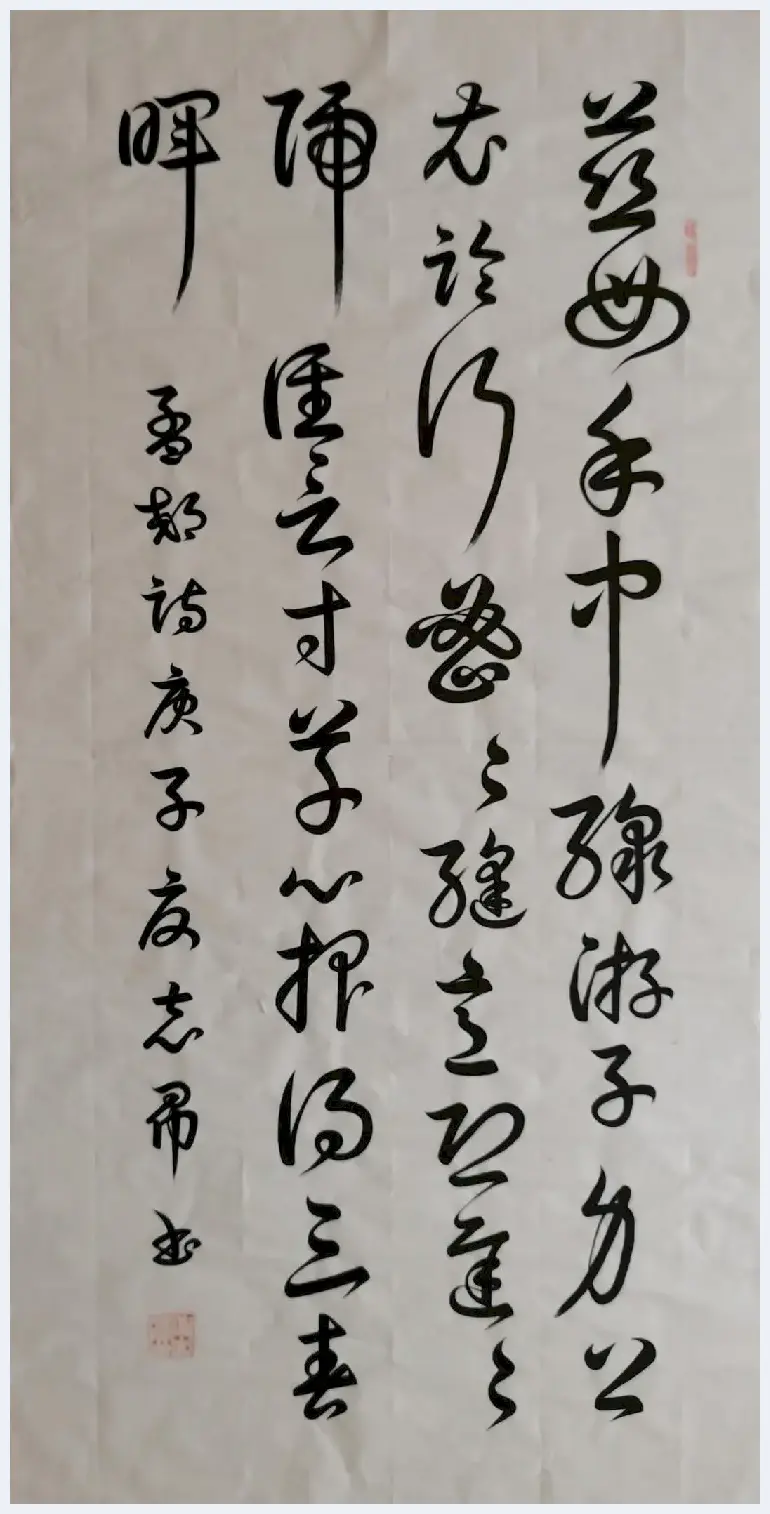 慈母手中線游子身上
衣臨行密〻縫意恐遲〻
歸誰言寸草心報得三春
暉 孟郊詩庚子夏志書